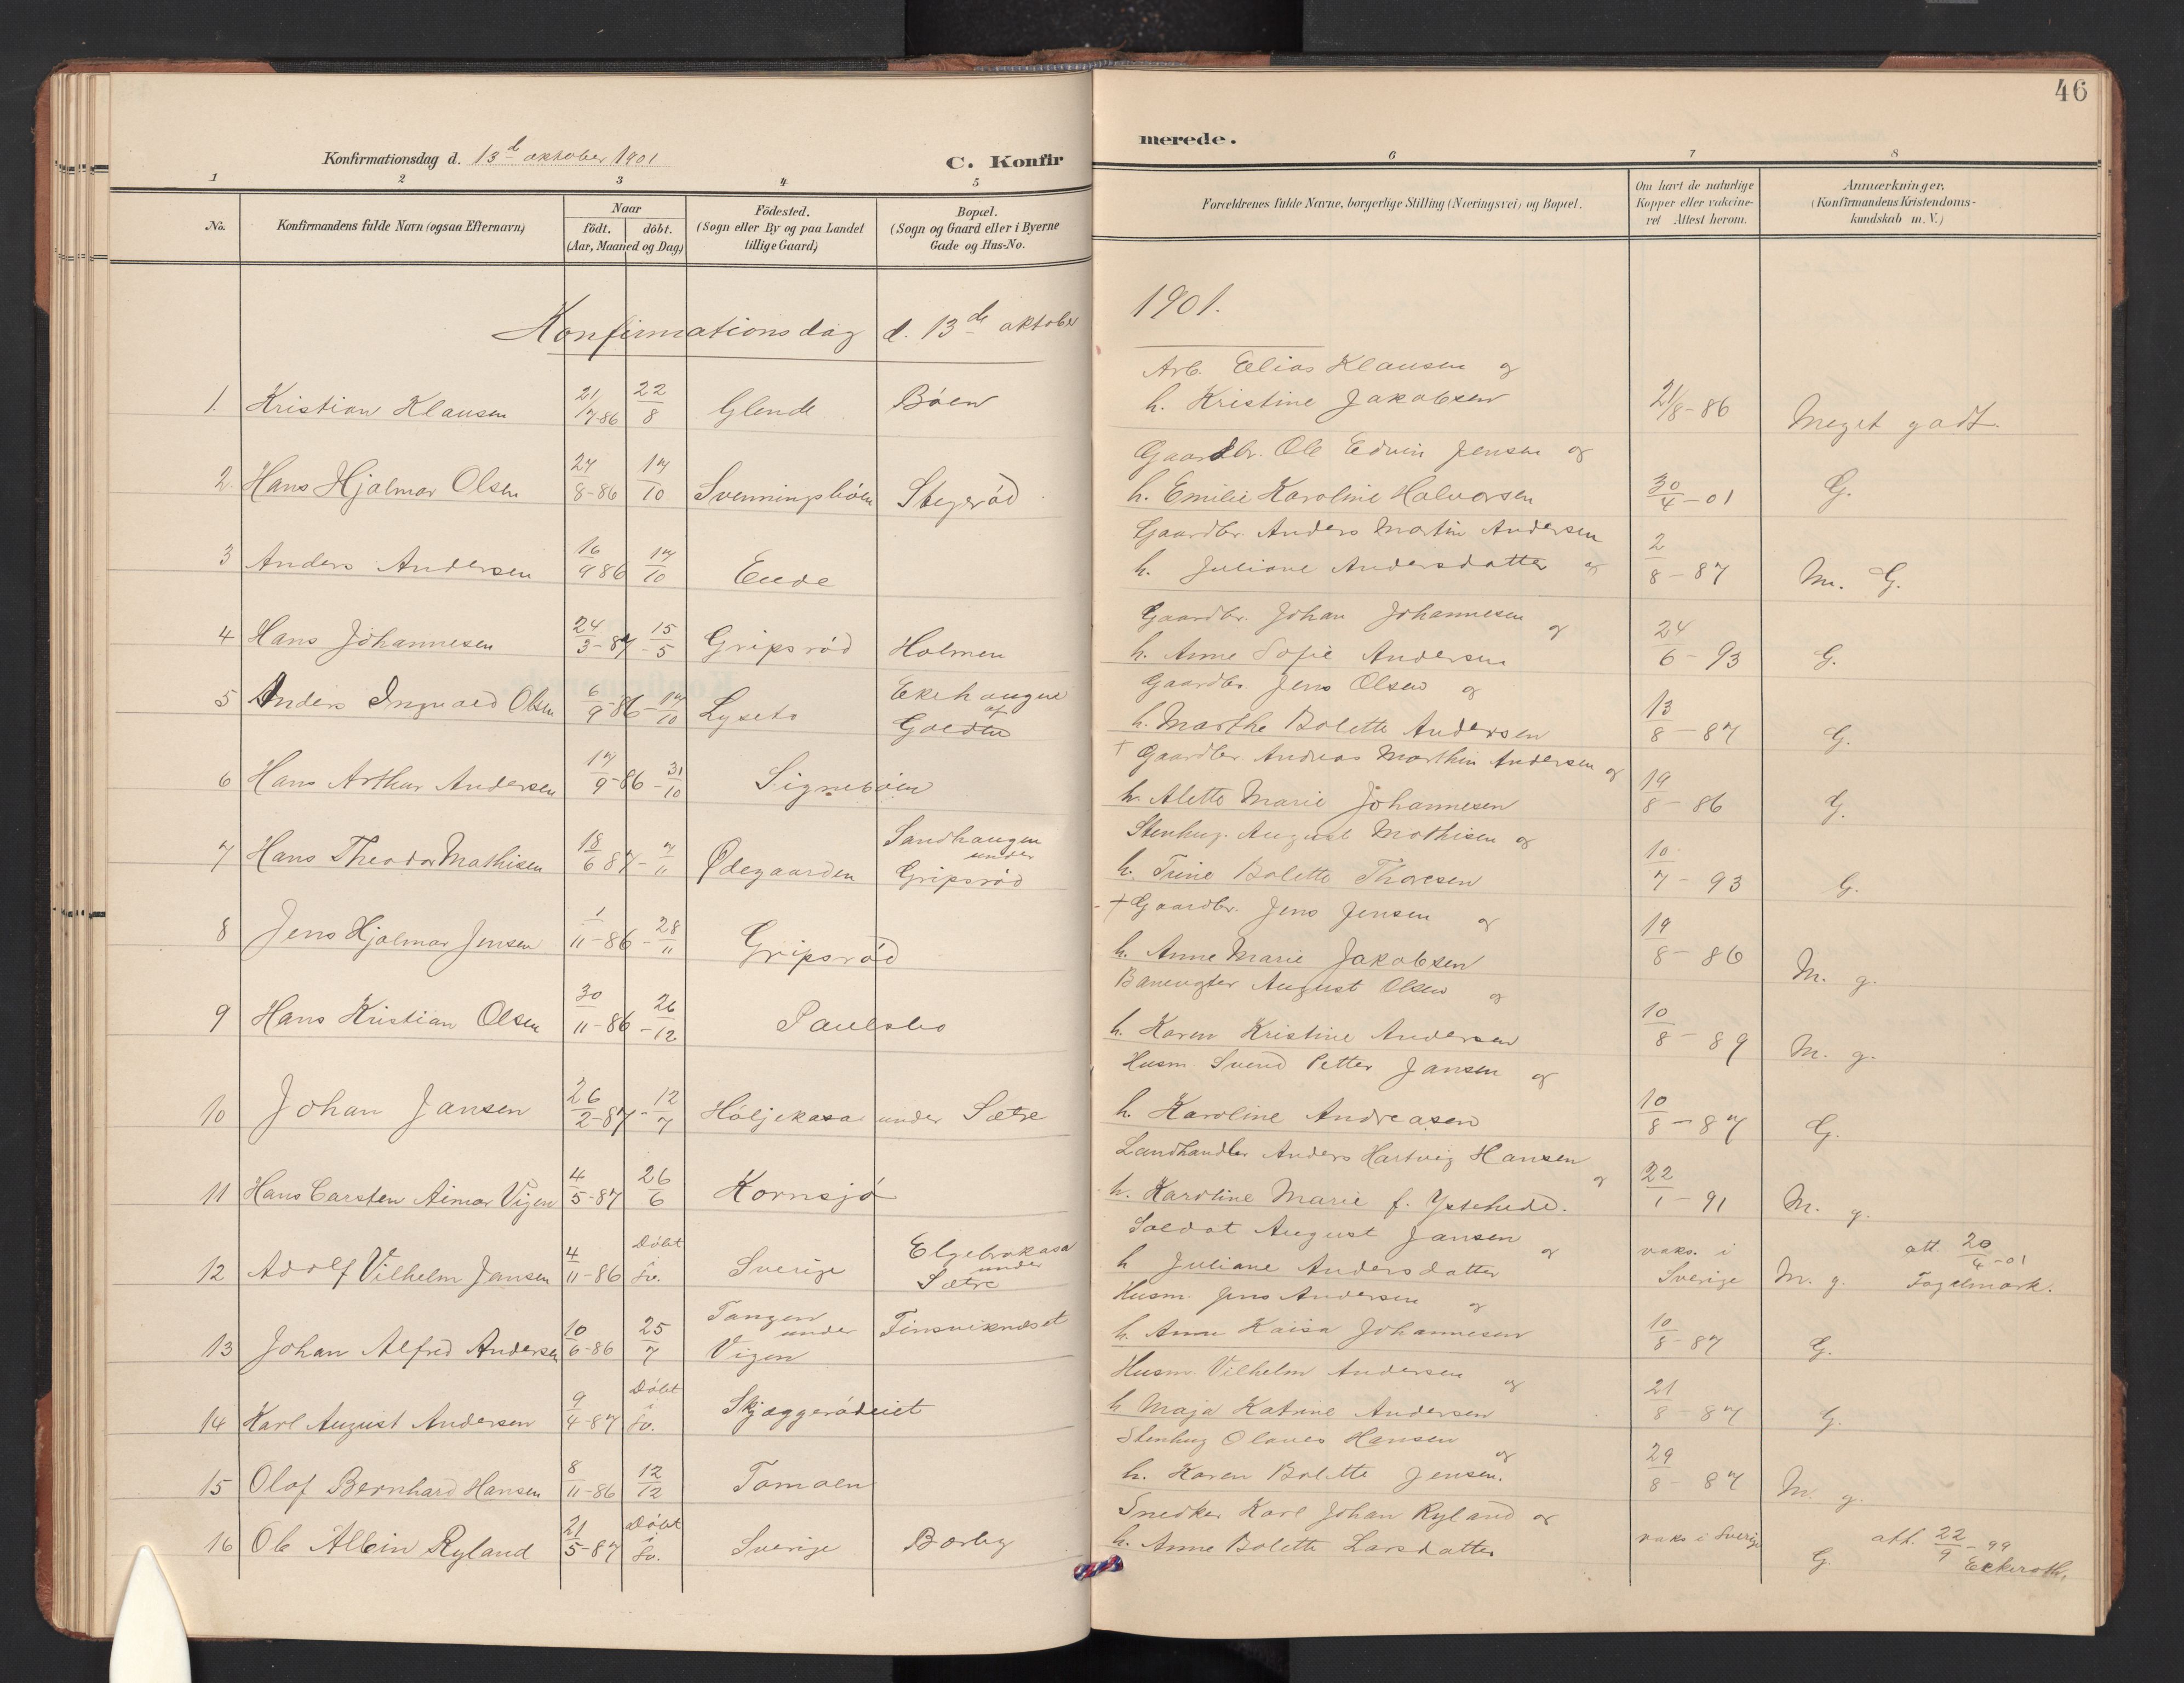 46
Konfirmationsdag d. 13de oktober 1901
C. Konfir
merede.
1 2 3 4 5 6 7 8
No.
Konfirmandens fulde Navn (ogsaa Efternavn)
Naar
födt. döbt.
(Aar, Maaned og Dag)
Födested.
(Sogn eller By og paa Landet
tillige Gaard)
Bopæl.
(Sogn og Gaard eller i Byerne
Gade og Hus-No.
Forældrenes fulde Navne, borgerlige Stilling (Næringsvei) og Bopæl.
Om havt de naturlige
Kopper eller vakcine-
ret Attest herom.
Anmærkninger.
(Konfirmandens Kristendoms-
kundskab m. V.)
Konfirmationsdag d. 13de oktober 1901.
Arb. Elias Klausen og
1. Kristian Klausen 21/7-86 22/8 Glende Böen h. Kristine Jakobsen 21/8-86 Meget godt.
Gaardbr. Ole Edvin Jensen og
2. Hans Hjalmar Olsen 27/8-86 17/10 Svenningsböen Stegeröd h. Emilie Karoline Halvorsen 30/4-01 G.
Gaardbr. Anders Martin Andersen
3 Anders Andersen 16/9 86 17/10 Eede h. Juliane Andersdatter og 2/8-87 M. G.
Gaardbr. Johan Johannesen og
4 Hans Johannesen 24/3-87 15/5 Gripsröd Holmen h. Anne Sofie Andersen 24/6-93 G.
Gaardbr. Jens Olsen og
5 Anders Ingvald Olsen 6/9-86 17/10 Lysebo Ekehaugne af h. Marthe Bolette Andersen 13/8-87 G.
† Gaardbr. Andreas Marthin Andersen og
6 Hans Arthur Andersen 17/9-86 31/10 Signeböen h. Alette Marie Johannesen 19/8-86 G.
Stenhug. August Mathisen og
7 Hans Theodor Mathisen 18/6 87 7/11 Ödegaarden Sandhaugen under Gripsröd h. Trine Bolette Thoresen 10/7-93 G.
† Gaardbr. Jens Jensen og
8 Jens Hjalmar Jensen 1/11-86 28/11 Gripsröd h. Anne Marie Jakobsen 19/8-86 M. g.
Banevogter August Olsen og
9 Hans Kristian Olsen 30/11-86 26/12 Paulsbo h. Karen Kristine Andersen 10/8-89 M. g.
Husm. Svend Petter Jansen og
10 Johan Jansen 26/2-87 12/7 Höljekasa under Sætre h. Karoline Andreasen 10/8-87 G.
Landhandler Anders Hartvig Hansen og
11 Hans Carsten Aimar Vigen 4/5-87 26/6 Kornsjö h. Karoline Marie f. Ystehede. 22/1-91 M. g.
Soldat August Jansen og
12 Adolf Vilhelm Jansen 4/11-86 Döbt i Sv. Sverige Elgebrokasa under Sætre h Juliane Andersdatter vaks. i Sverige M. g. att. 20/4-01 Fogelmark.
Husm. Jens Andersen og
13 Johan Alfred Andersen 10/6-86 25/7 Tangen under Vigen Finsviknæset h. Anna Kaisa Johannesen 10/8-87 G.
Husm. Vilhelm Andersen og
14 Karl August Andersen 9/4-87 Döbt i Sv. Skjæggerödeiet h Maja Katrine Andersen 21/8-87 G.
Stenhug Olaves Hansen og
15 Olaf Bernhard Hansen 8/11-86 12/12 Tomoen h. Karen Bolette Jensen. 29/8-87 M. g.
Snedker Karl Johan Ryland og
16 Ole Albin Ryland 21/5-87 Döbt i Sv. Sverige Borby h. Anne Bolette Larsdatter vaks i Sverige G. att. 22/9-99 Eckeroth.